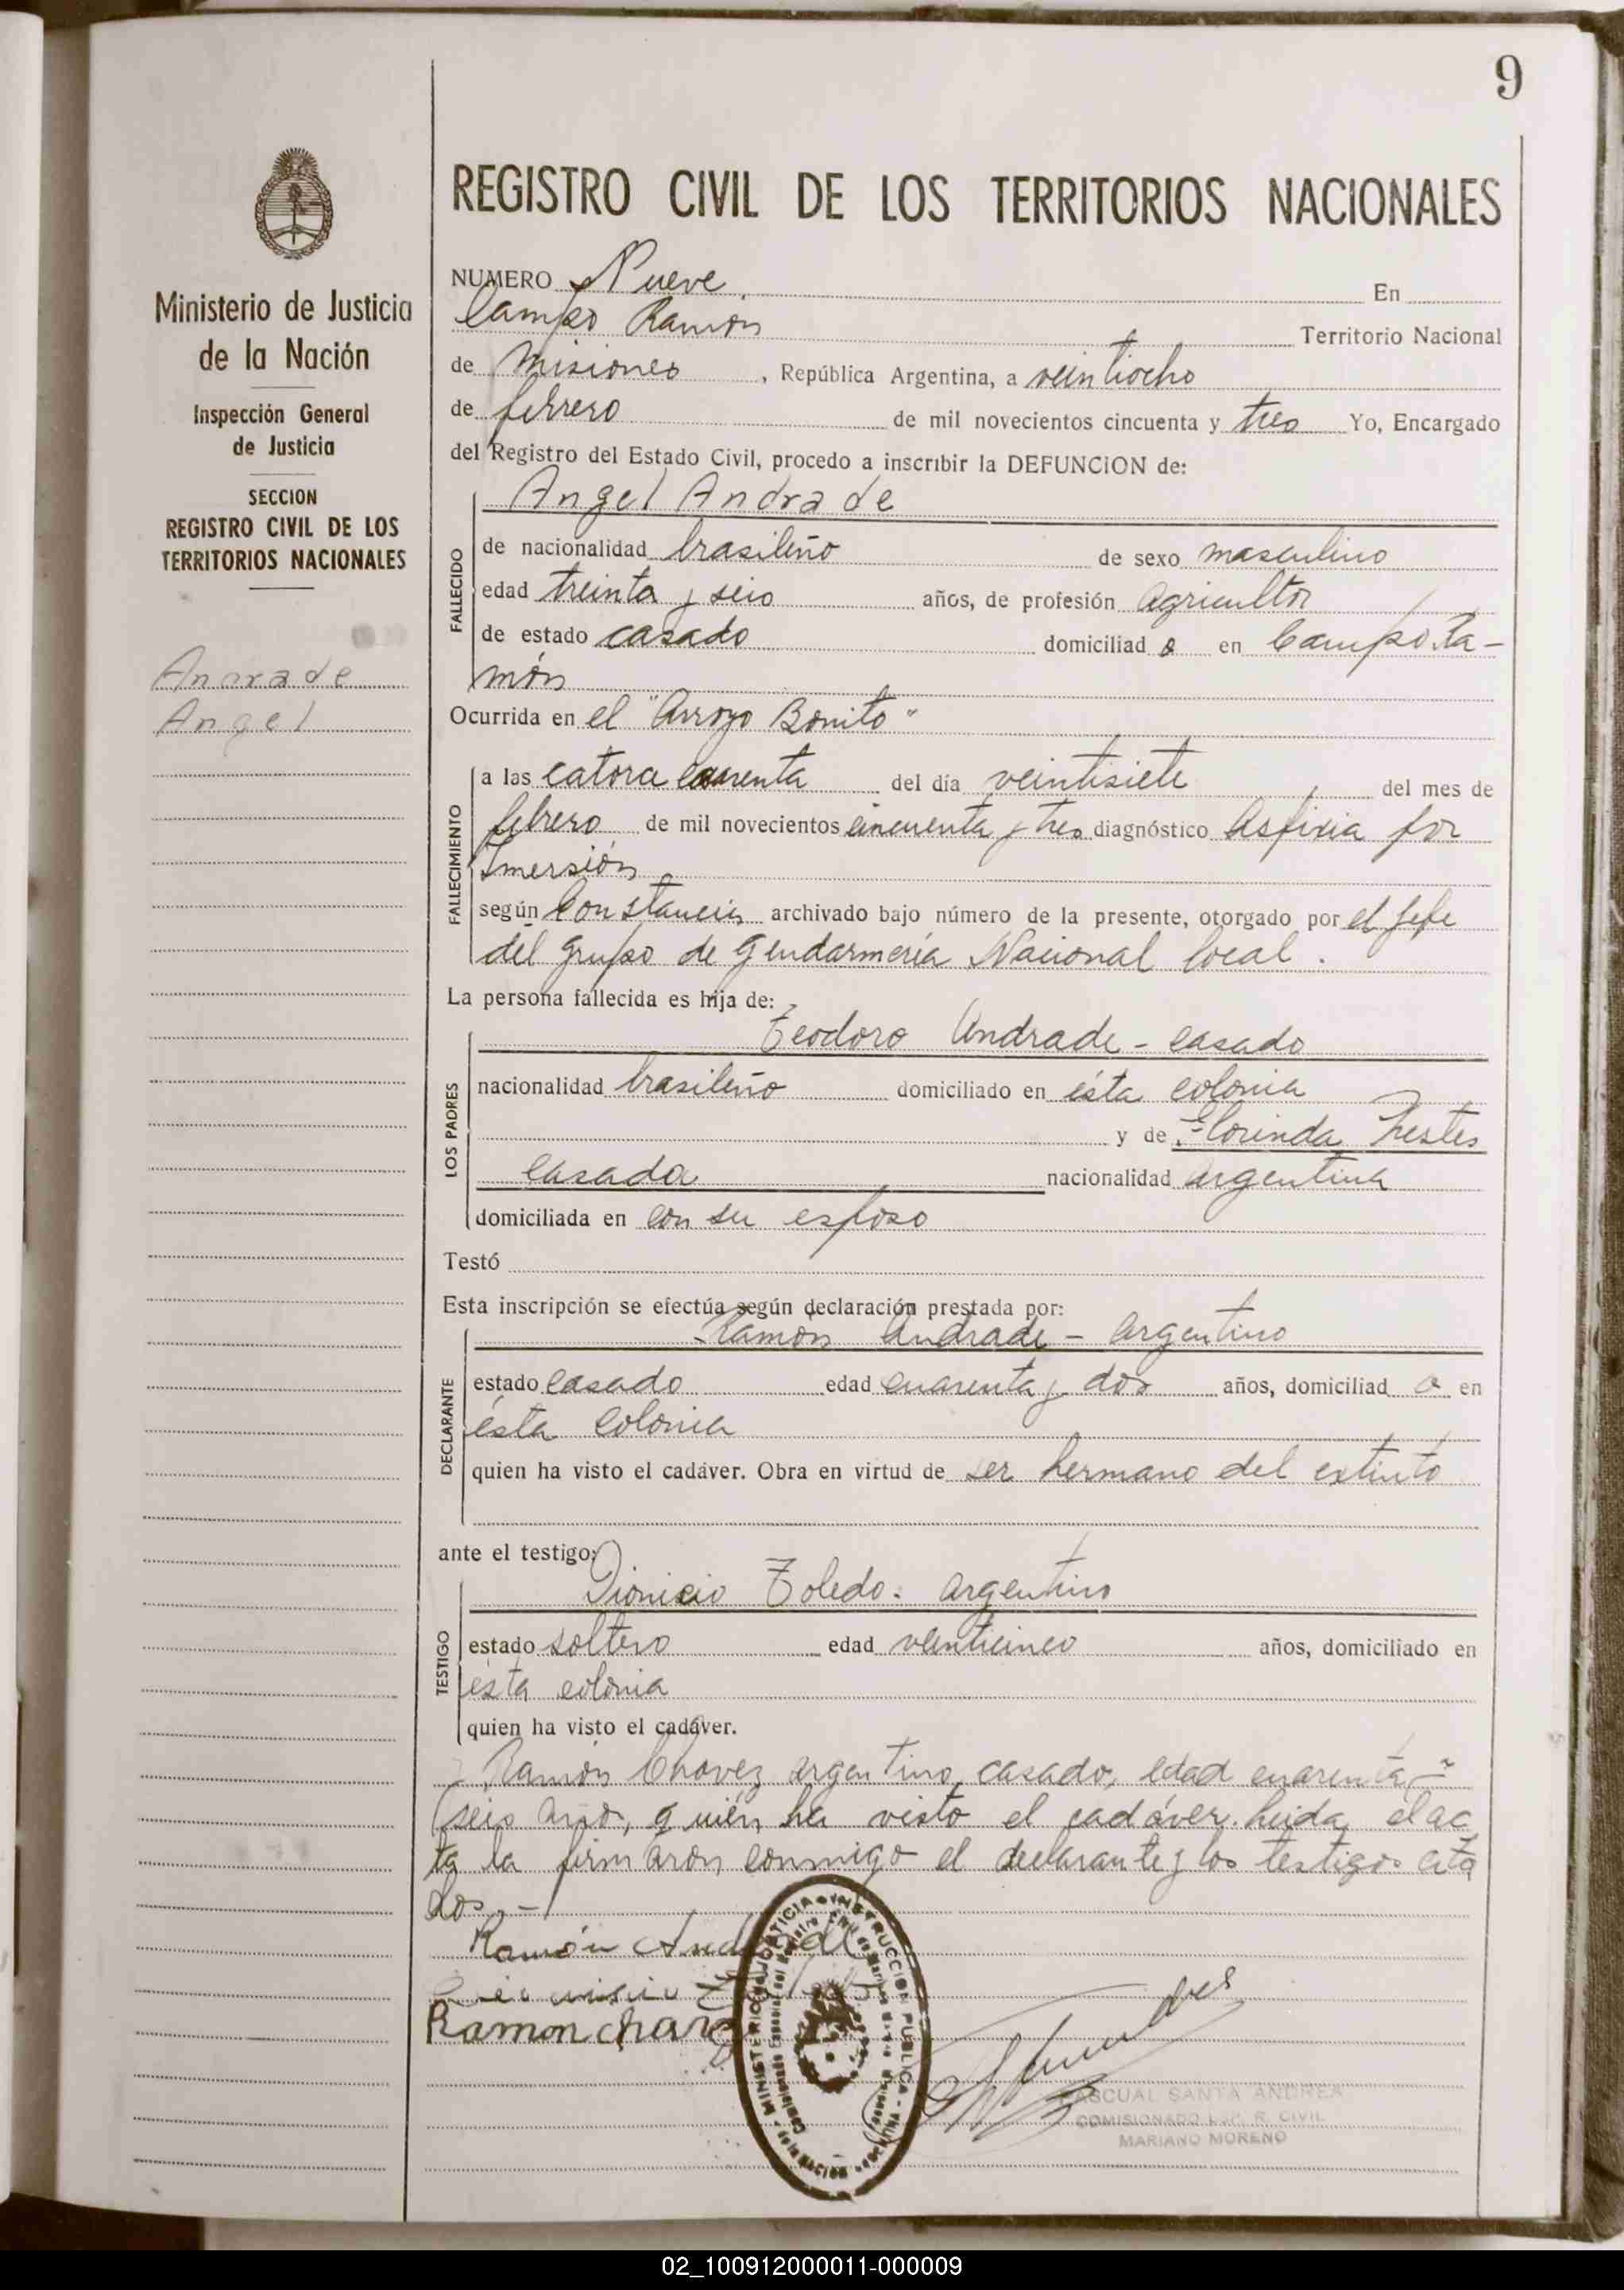 9
REGISTRO CIVIL DE LOS TERRITORIOS NACIONALES
Ministerio de Justicia
de la Nación
Inspección General
de Justicia
SECCION
REGISTRO CIVIL DE LOS
TERRITORIOS NACIONALES
Andrade
Angel
NUMERO Nueve. En
Campo Ramón Territorio Nacional
de Misiones, República Argentina, a veintiocho
de febrero de mil novecientos cincuenta y tres Yo, Encargado
del Registro del Estado Civil, procedo a inscribir la DEFUNCION de:
Angel Andrade
FALLECIDO
de nacionalidad brasileño de sexo masculino
edad treinta y seis años, de profesión Agricultor
de estado casado domiciliad o en Campo Ra-
món
Ocurrida en el "Arroyo Bonito"
FALLECIMIENTO
a las catorce cuarenta del día veintisiete del mes de
febrero de mil novecientos cincuenta y tres diagnóstico Asfixia por
Imersión
según Constancia archivado bajo número de la presente, otorgado por el Jefe
del grupo de Gendarmería Nacional local.
La persona fallecida es hija de:
LOS PADRES
Teodoro Andrade - casado
nacionalidad brasileño domiciliado en ésta colonia
y de Florinda Prestes
casada nacionalidad argentina
domiciliada en con su esposo
Testó
Esta inscripción se efectúa según declaración prestada por:
DECLARANTE
Ramón Andrade - argentino
estado casado edad cuarenta y dos años, domiciliad o en
ésta colonia
quien ha visto el cadáver. Obra en virtud de ser hermano del extinto
ante el testigo:
TESTIGO
Dionicio Toledo. argentino
estado soltero edad veinticinco años, domiciliado en
ésta colonia
quien ha visto el cadáver.
y Ramón Chavez argentino, casado, edad cuarenta y
seis año, quién ha visto el cadáver. leida el ac
ta la firmarón conmigo el declarante y los testigos cita
dos.-
Ramón Andrade
Ramon chavez
MINISTERIO DE JUSTICIA INSTRUCCION PUBLICA
PASCUAL SANTA ANDREA
COMISIONADO ESP. R. CIVIL
MARIANO MORENO
02_100912000011-000009